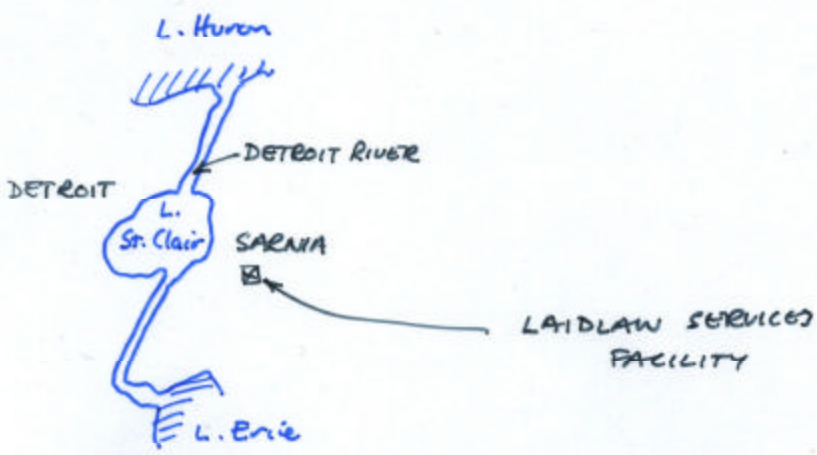 L. Huron
DETROIT RIVER
DETROIT
L.
St. Clair
SARNIA
LAIDLAW SERVICES
FACILITY
L. Erie